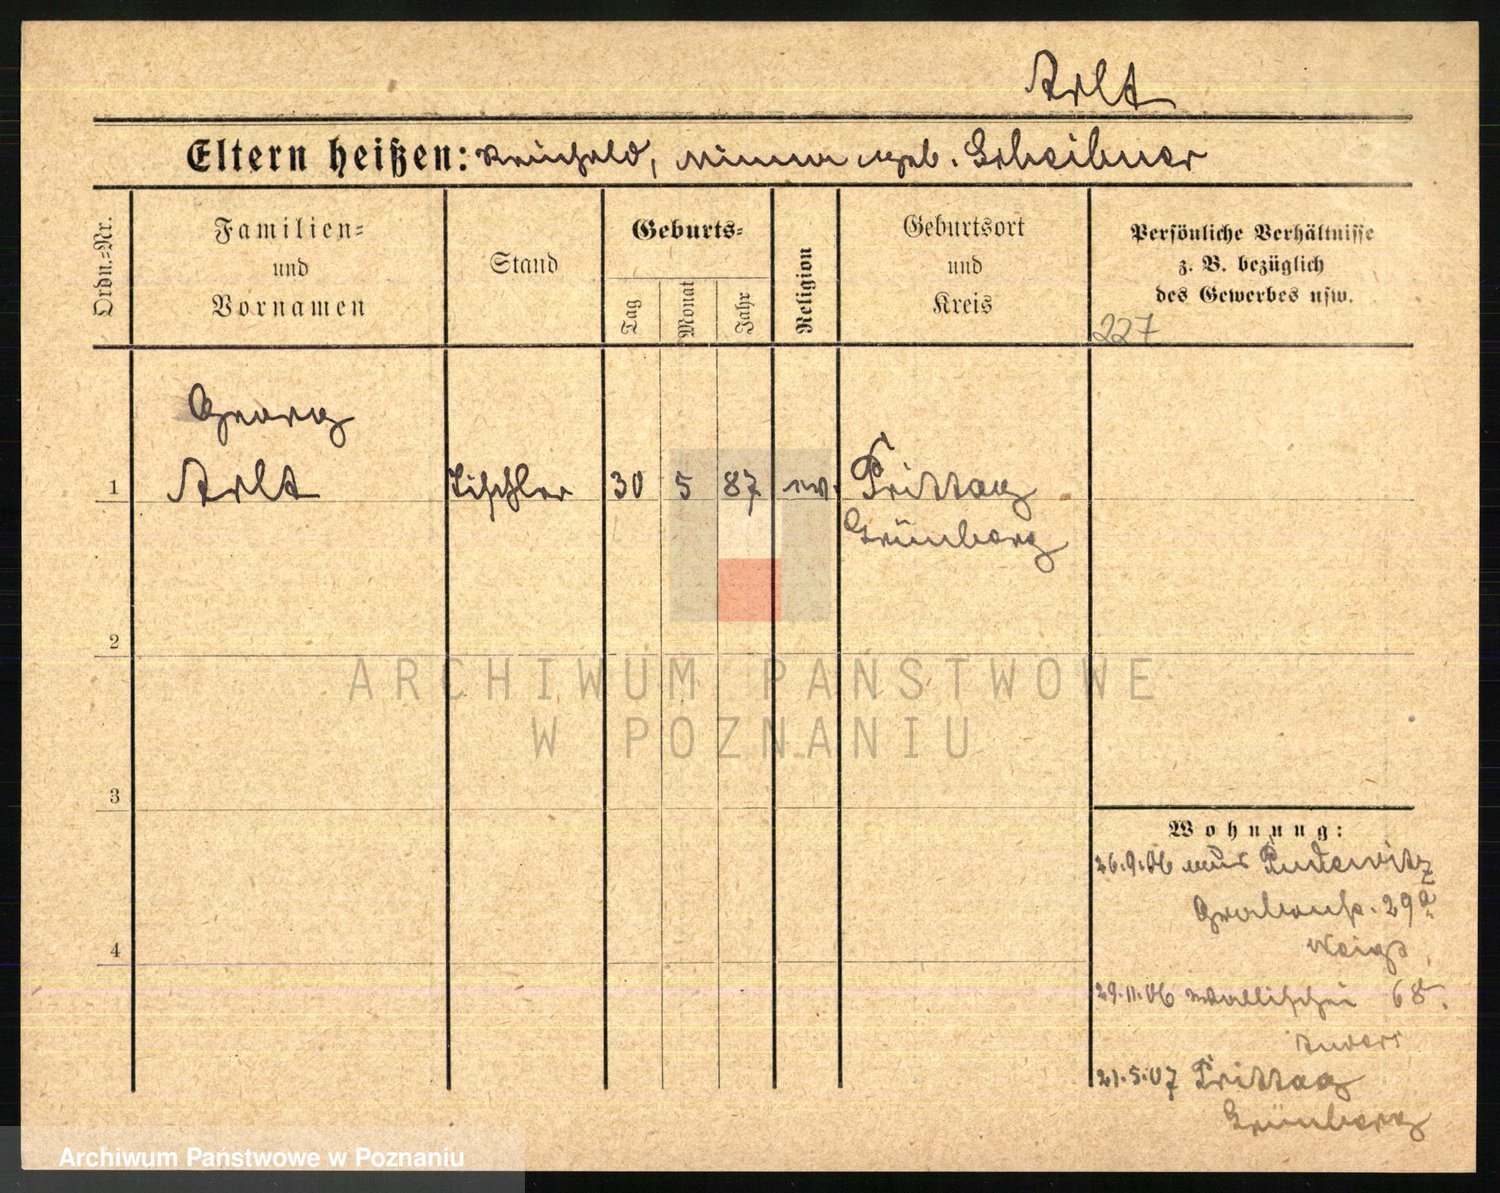 Arlt
Eltern heißen: Reinhold, Minna geb. Scheibner
Ordn.-Nr.
Familien-
und
Vornamen
Stand
Geburts-
Tag
Monat
Jahr
Religion
Geburtsort
und
Kreis
Persönliche Verhältnisse
z. B. bezüglich
des Gewerbes usw.
227
Georg
1 Arlt Tischler 30 5 87 ev. Prittag
Grünberg
2
3
4
Wohnung:
26.9.06 aus Pudewitz
Grabenstr. 29a
29.11.06 Wallischei 68
21.5.07 Prittag
Grünberg
ARCHIWUM PAŃSTWOWE
W POZNANIU
Archiwum Państwowe w Poznaniu